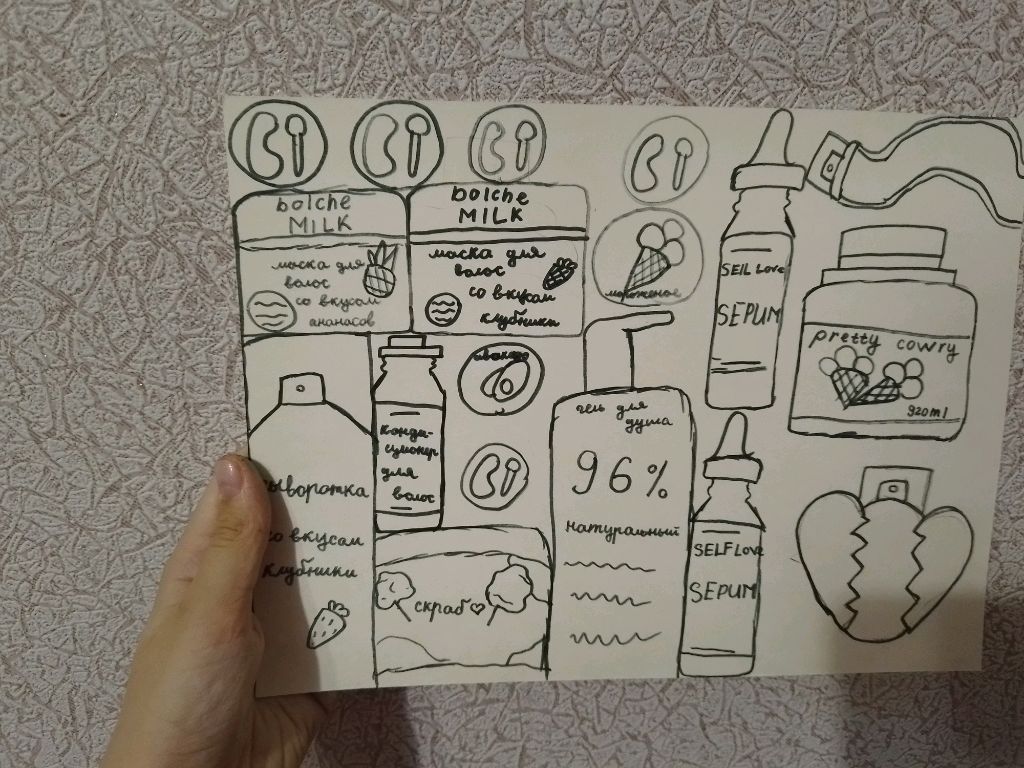 bolche
MILK
маска для
волос
со вкусом
ананасов
bolche
MILK
маска для
волос
со вкусом
клубники
мороженое
SEIL Love
SEPUM
pretty cowry
920ml
авокадо
конди-
ционер
для
волос
гель для
душа
96%
натуральный
ыворотка
со вкусом
клубники
скраб
SELF Love
SEPUM